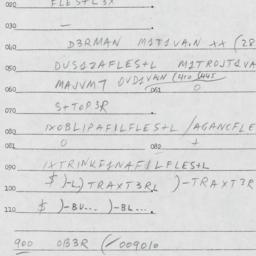 020 FLES+L3X
030 —
040 D3RMAN M1T1VA.N XX (28
050 DUS12AFLES+L M1TROJT1VA
060 MAJVM7 OVD1VAN (410 (445
061 0
070 S+TOP3R
080 IXOBLIPAFILFLES+L /AGANCFLE
081 0 082 +
090 IXTRINKF1NAFILFLES+L
100 $ )-L) TRAXT3RL )-TRAXT3R
110 $ )-BU... )-BL...
900 OB3R (/009010